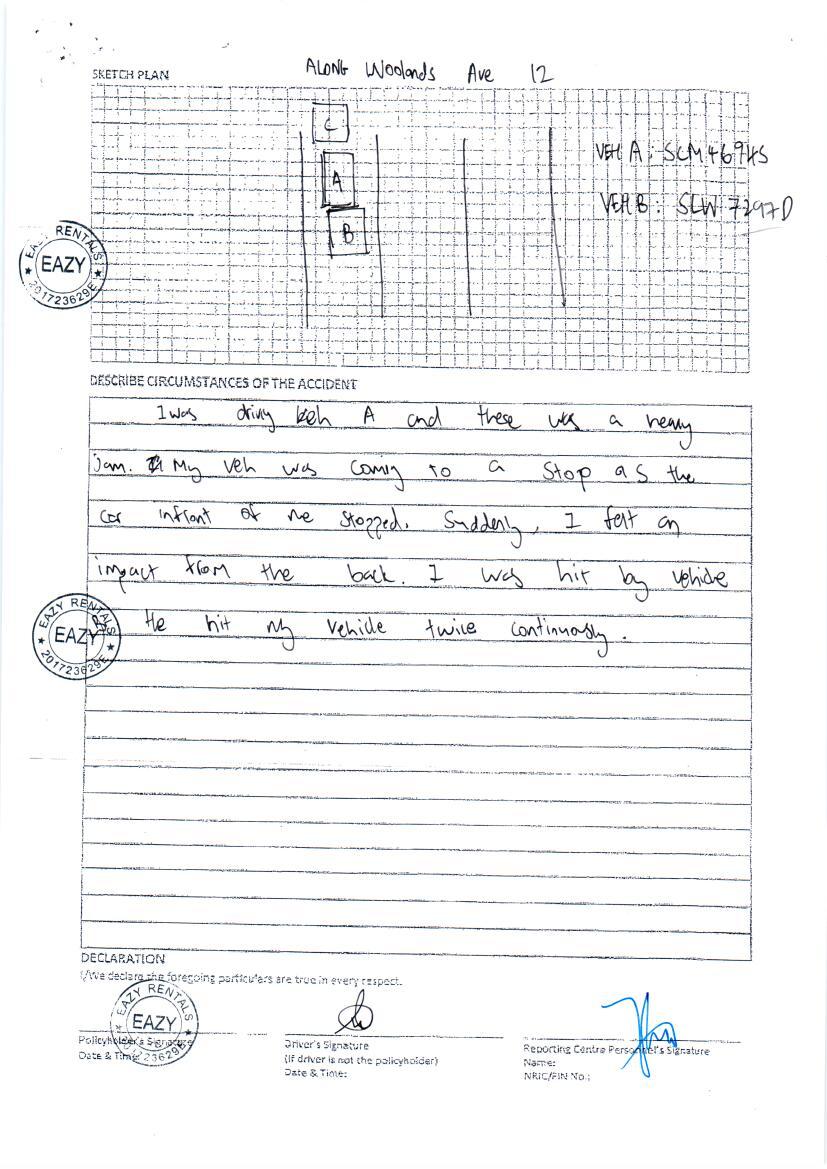 SKETCH PLAN
ALONG Woolands Ave 12
C
A
B
VEH A : SCM4694S
VEH B : SLW 7297D
EAZY RENTALS
EAZY
201723629E
DESCRIBE CIRCUMSTANCES OF THE ACCIDENT
I was driving veh A and there was a heavy
jam. My veh was coming to a stop as the
car infront of me stopped. Suddenly, I felt an
impact from the back. I was hit by vehicle
He hit my vehicle twice continuously.
EAZY RENTALS
EAZY
201723629E
DECLARATION
I/We declare the foregoing particulars are true in every respect.
EAZY RENTALS
EAZY
Policyholder's Signature
Date & Time:
Driver's Signature
(If driver is not the policyholder)
Date & Time:
Reporting Centre Personnel's Signature
Name:
NRIC/FIN No.: